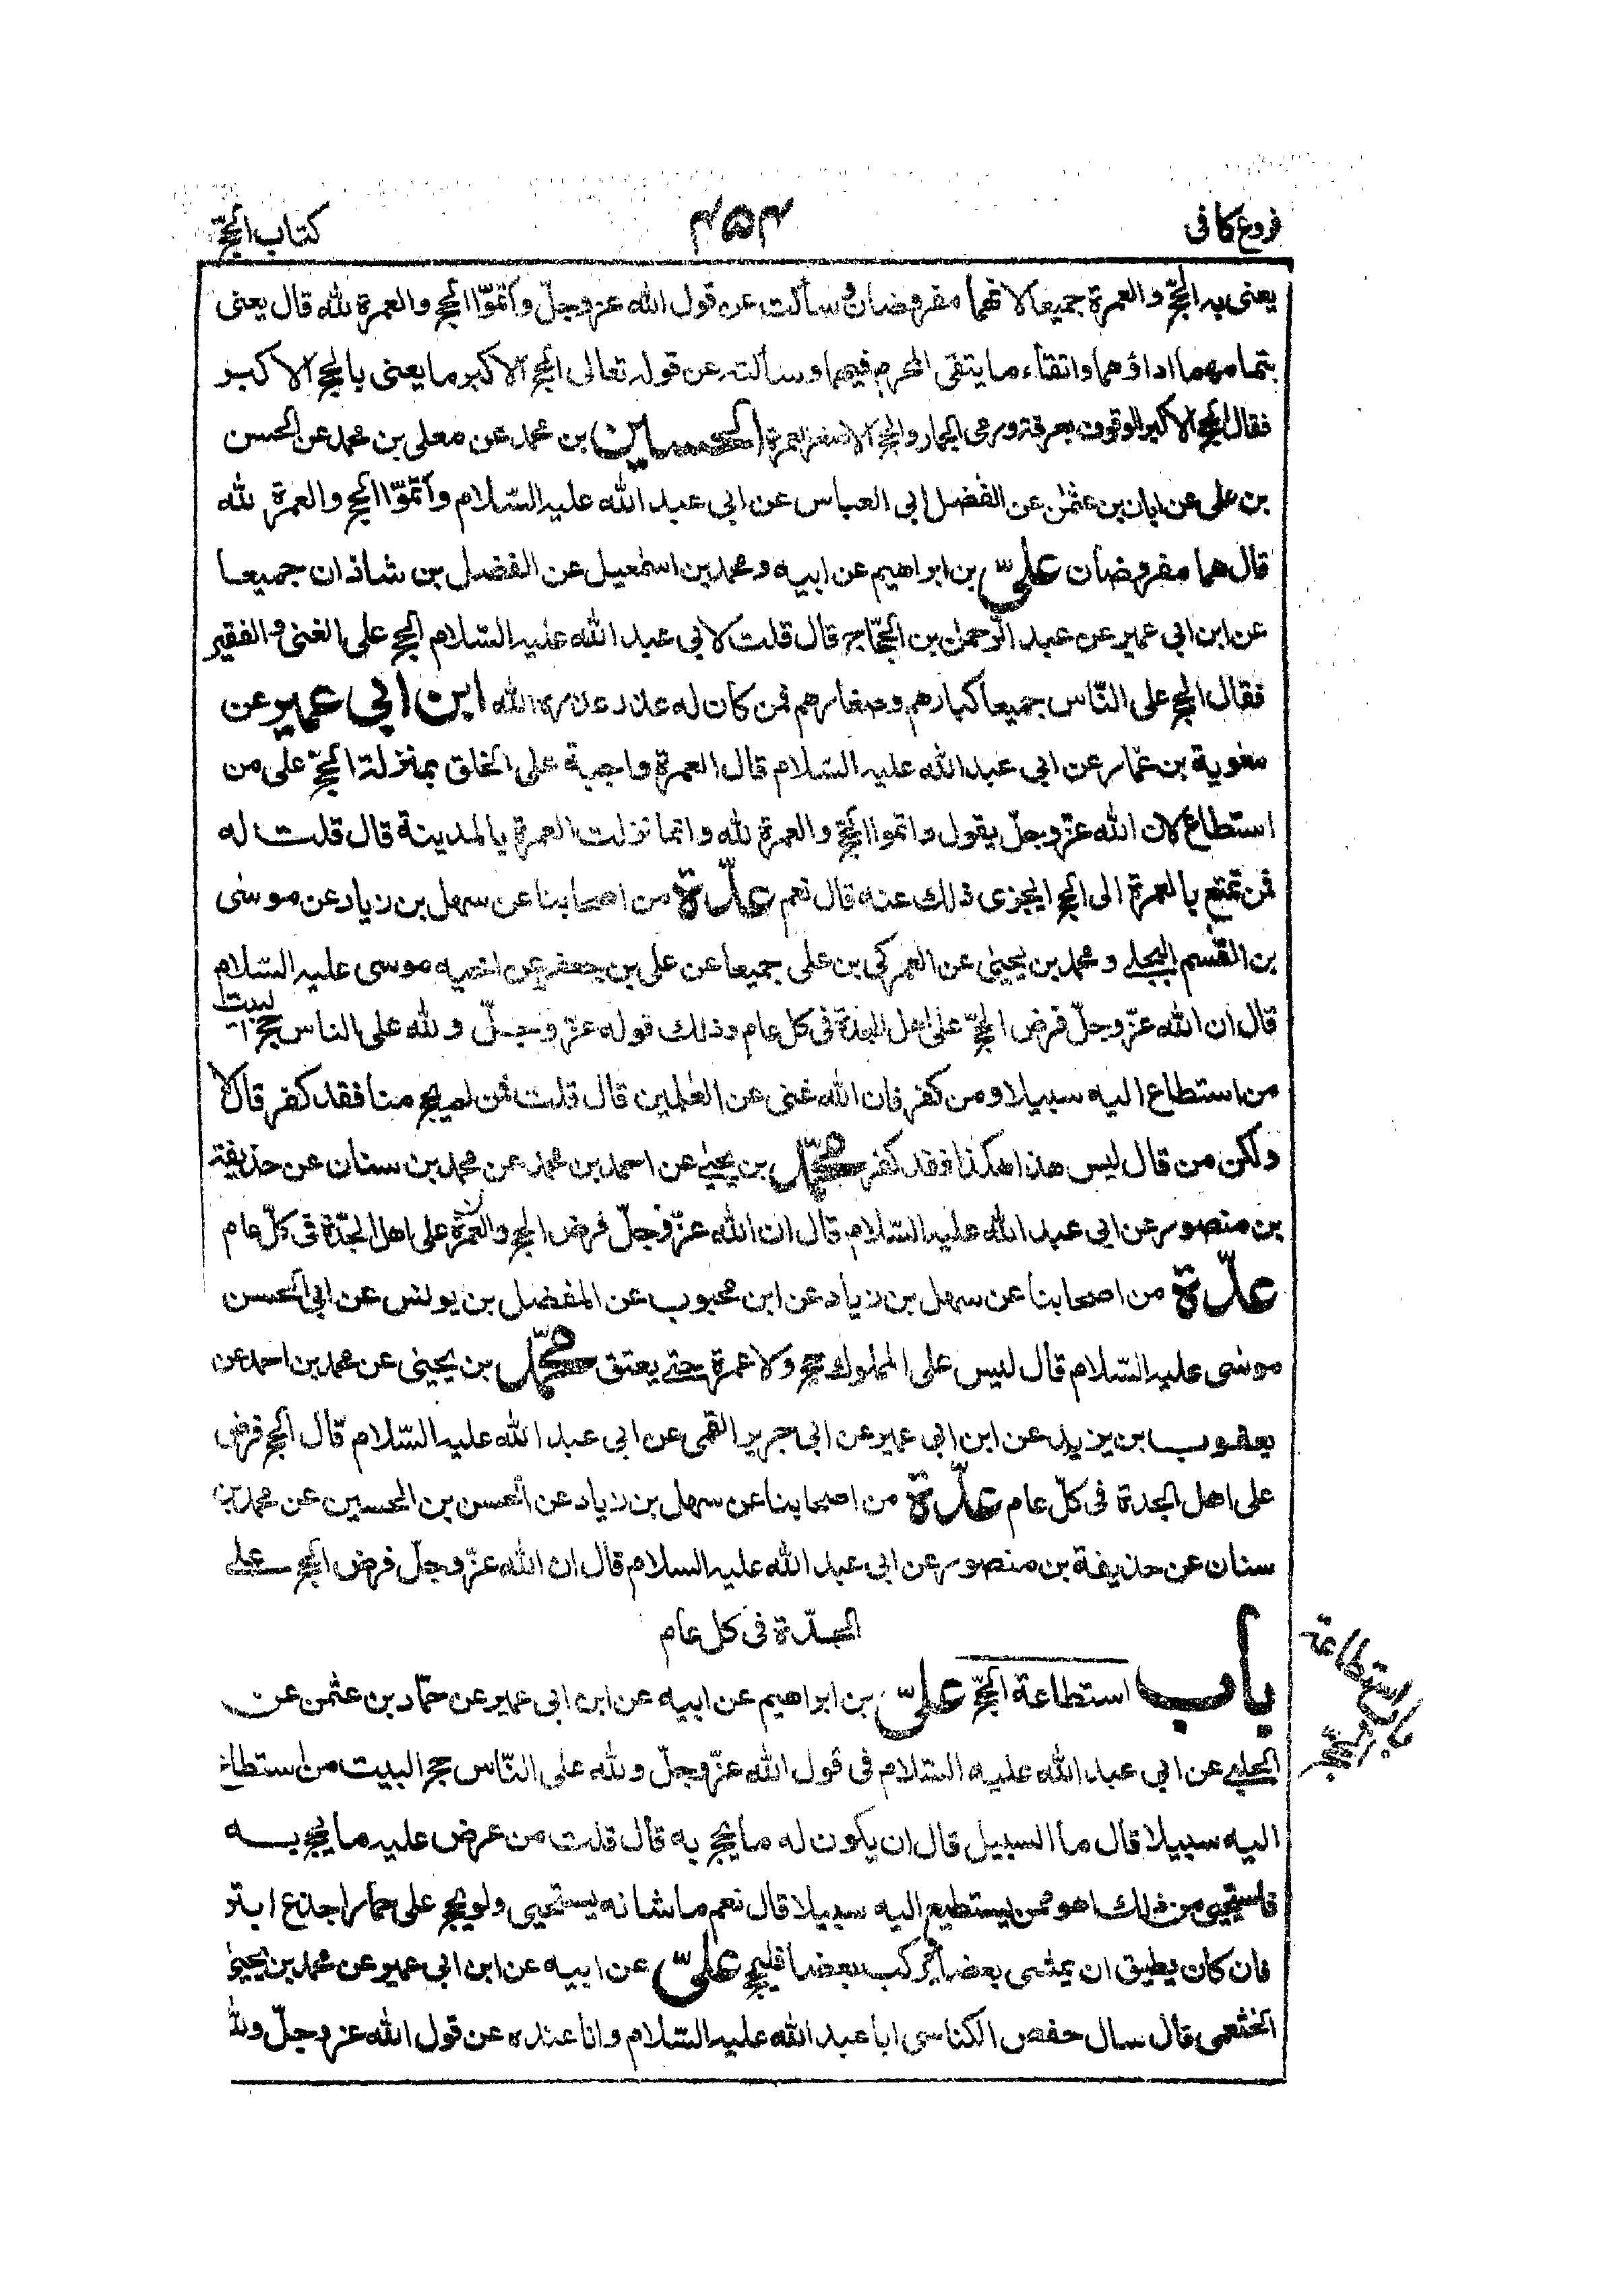 فروع كافى
۴۵۴
كتاب الحجّ
يعنى به الحجّ والعمرة جميعا لانهما مفروضان وسألت عن قول الله عزوجلّ واتمّوا الحج والعمرة لله قال يعنى
بتمامهما اداؤهما واتقاء ما يتقى المحرم فيهما وسألته عن قوله تعالى الحج الاكبر ما يعنى بالحج الاكبر
فقال الحج الاكبر الوقوف بعرفة ورمى الجمار والحج الاصغر العمرة الحسين بن محمد عن معلى بن محمد عن الحسن
بن على عن ابان بن عثمٰن عن الفضل ابى العباس عن ابى عبد الله عليه السّلام واتمّوا الحج والعمرة لله
قال هما مفروضان علىّ بن ابراهيم عن ابيه ومحمد بن اسمٰعيل عن الفضل بن شاذان جميعا
عن ابن ابى عمير عن عبد الرّحمٰن بن الحجّاج قال قلت لابى عبد الله عليه السّلام الحج على الغنى والفقير
فقال الحج على النّاس جميعا كبارهم وصغارهم فمن كان له عذر عذره الله ابن ابى عمير عن
معٰوية بن عمّار عن ابى عبد الله عليه السّلام قال العمرة واجبة على الخلق بمنزلة الحجّ على من
استطاع لان الله عزّوجلّ يقول واتموا الحجّ والعمرة لله وانما نزلت العمرة بالمدينة قال قلت له
فمن تمتع بالعمرة الى الحج ايجزى ذلك عنه قال نعم عدّة من اصحابنا عن سهل بن زياد عن موسٰى
بن القٰسم البجلى ومحمد بن يحيٰى عن العمركى بن على جميعا عن على بن جعفر عن اخيه موسى عليه السّلام
قال ان الله عزّوجلّ فرض الحجّ على اهل الجدة فى كل عام وذلك قوله عزّ وجلّ ولله على الناس حج البيت
من استطاع اليه سبيلا ومن كفر فان الله غنى عن العٰلمين قال قلت فمن لم يحج منا فقد كفر قال لا
ولكن من قال ليس هذا هكذا فقد كفر محمّد بن يحيٰى عن احمد بن محمد عن محمد بن سنان عن حذيفة
بن منصور عن ابى عبد الله عليه السّلام قال ان الله عزّوجلّ فرض الحج والعمرة على اهل الجدّة فى كلّ عام
عدّة من اصحابنا عن سهل بن زياد عن ابن محبوب عن المفضل بن يونس عن ابى الحسن
موسٰى عليه السّلام قال ليس على المملوك حج ولا عمرة حتى يعتق محمّد بن يحيٰى عن محمد بن احمد عن
يعقوب بن يزيد عن ابن ابى عمير عن ابى جرير القمى عن ابى عبد الله عليه السّلام قال الحج فرض
على اهل الجدة فى كلّ عام عدّة من اصحابنا عن سهل بن زياد عن الحسن بن الحسين عن محمد بن
سنان عن حذيفة بن منصور عن ابى عبد الله عليه السلام قال ان الله عزّ وجلّ فرض الحج على
الجدّة فى كل عام
باب استطاعة الحجّ علىّ بن ابراهيم عن ابيه عن ابن ابى عمير عن حمّاد بن عثمٰن عن
الحلبى عن ابى عبد الله عليه السّلام فى قول الله عزّوجلّ ولله على النّاس حج البيت من استطاع
اليه سبيلا قال ما السبيل قال ان يكون له ما يحج به قال قلت من عرض عليه ما يحج به
فاستحيى من ذلك اهو ممن يستطيع اليه سبيلا قال نعم ما شانه يستحيى ولو يحج على حمار اجذع ابتر
فان كان يطيق ان يمشى بعضا ويركب بعضا فليحج علىّ عن ابيه عن ابن ابى عمير عن محمد بن يحيٰى
الخثعمى قال سال حفص الكناسى ابا عبد الله عليه السّلام وانا عنده عن قول الله عزوجلّ ولله
باب استطاعة الحج